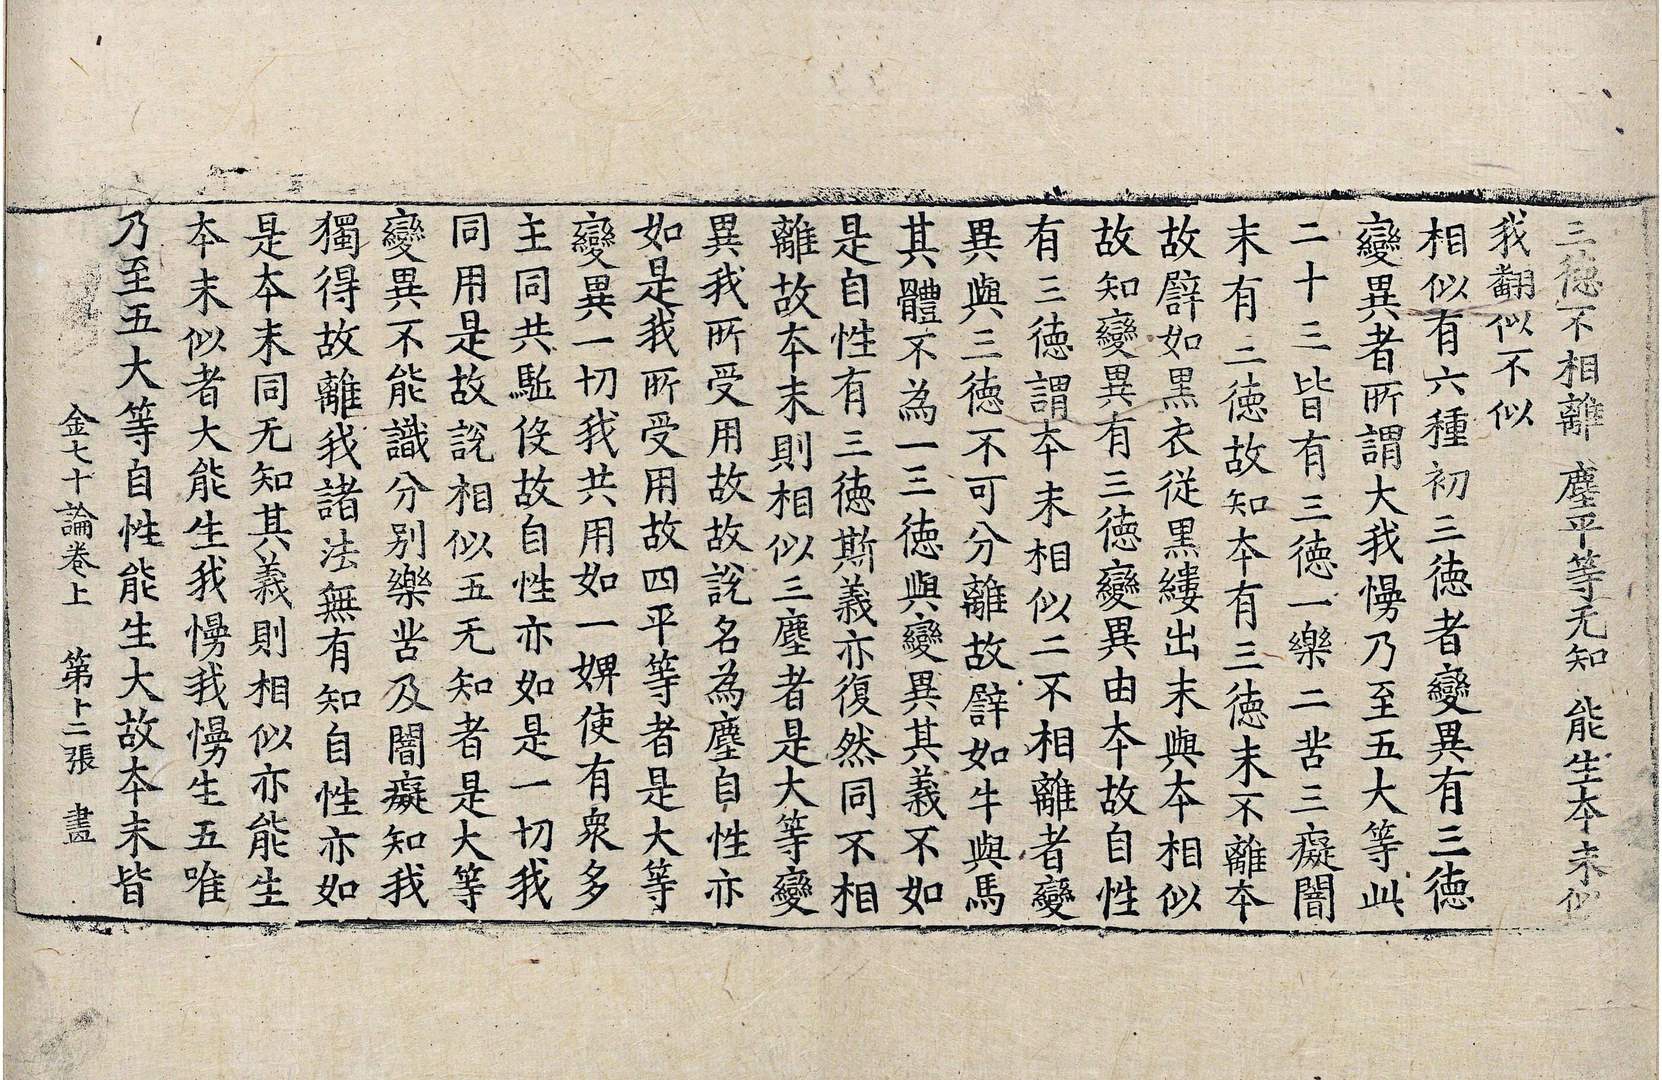 三徳不相離 塵平等无知 能生本末似
我翻似不似
相似有六種初三徳者變異有三徳
變異者所謂大我慢乃至五大等此
二十三皆有三徳一樂二苦三癡闇
末有三徳故知本有三徳末不離本
故譬如黒衣従黒縷出末與本相似
故知變異有三徳變異由本故自性
有三徳謂本末相似二不相離者變
異與三徳不可分離故譬如牛與馬
其體不為一三徳與變異其義不如
是自性有三徳斯義亦復然同不相
離故本末則相似三塵者是大等變
異我所受用故故說名為塵自性亦
如是我所受用故四平等者是大等
變異一切我共用如一婢使有衆多
主同共駈伇故自性亦如是一切我
同用是故說相似五无知者是大等
變異不能識分別樂苦及闇癡知我
獨得故離我諸法無有知自性亦如
是本末同无知其義則相似亦能生
本末似者大能生我慢我慢生五唯
乃至五大等自性能生大故本末皆
金七十論卷上 第十二張 盡